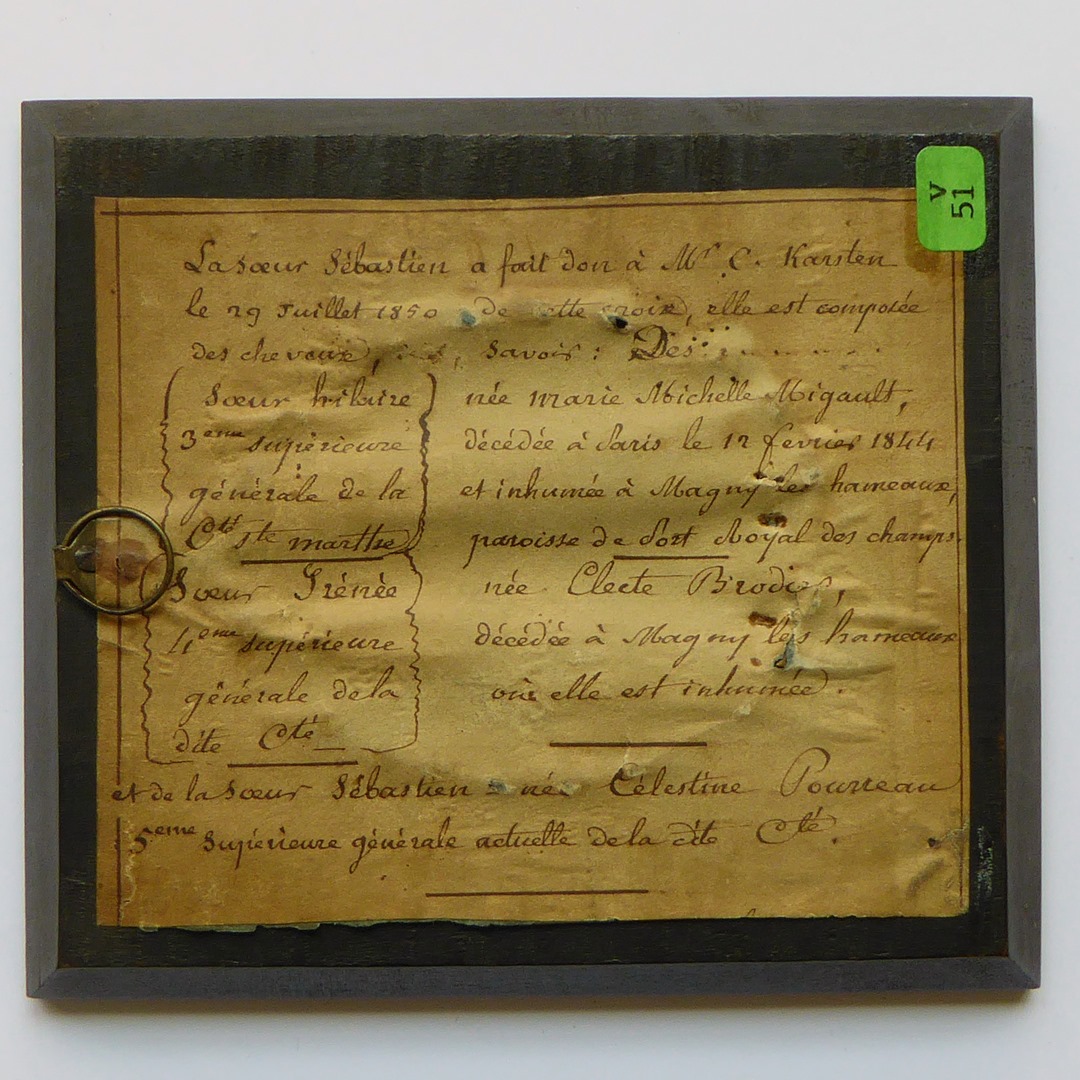 V
51
La Sœur Sébastien a fait don à Mr C. Karsten
le 29 Juillet 1850 de cette croix, elle est composée
des cheveux, savoir : Des
Sœur hilaire née marie Michelle Migault,
3eme supérieure décédée à Paris le 12 fevrier 1844
générale de la et inhumée à Magny les hameaux,
Cté ste marthe paroisse de Port Royal des champs.
Sœur Irénée née Clecte Brodier,
4eme supérieure décédée à Magny les hameaux
générale de la où elle est inhumée.
dite Cté
et de la Sœur Sébastien née Célestine Pourreau
5eme Supérieure générale actuelle de la dite Cté.